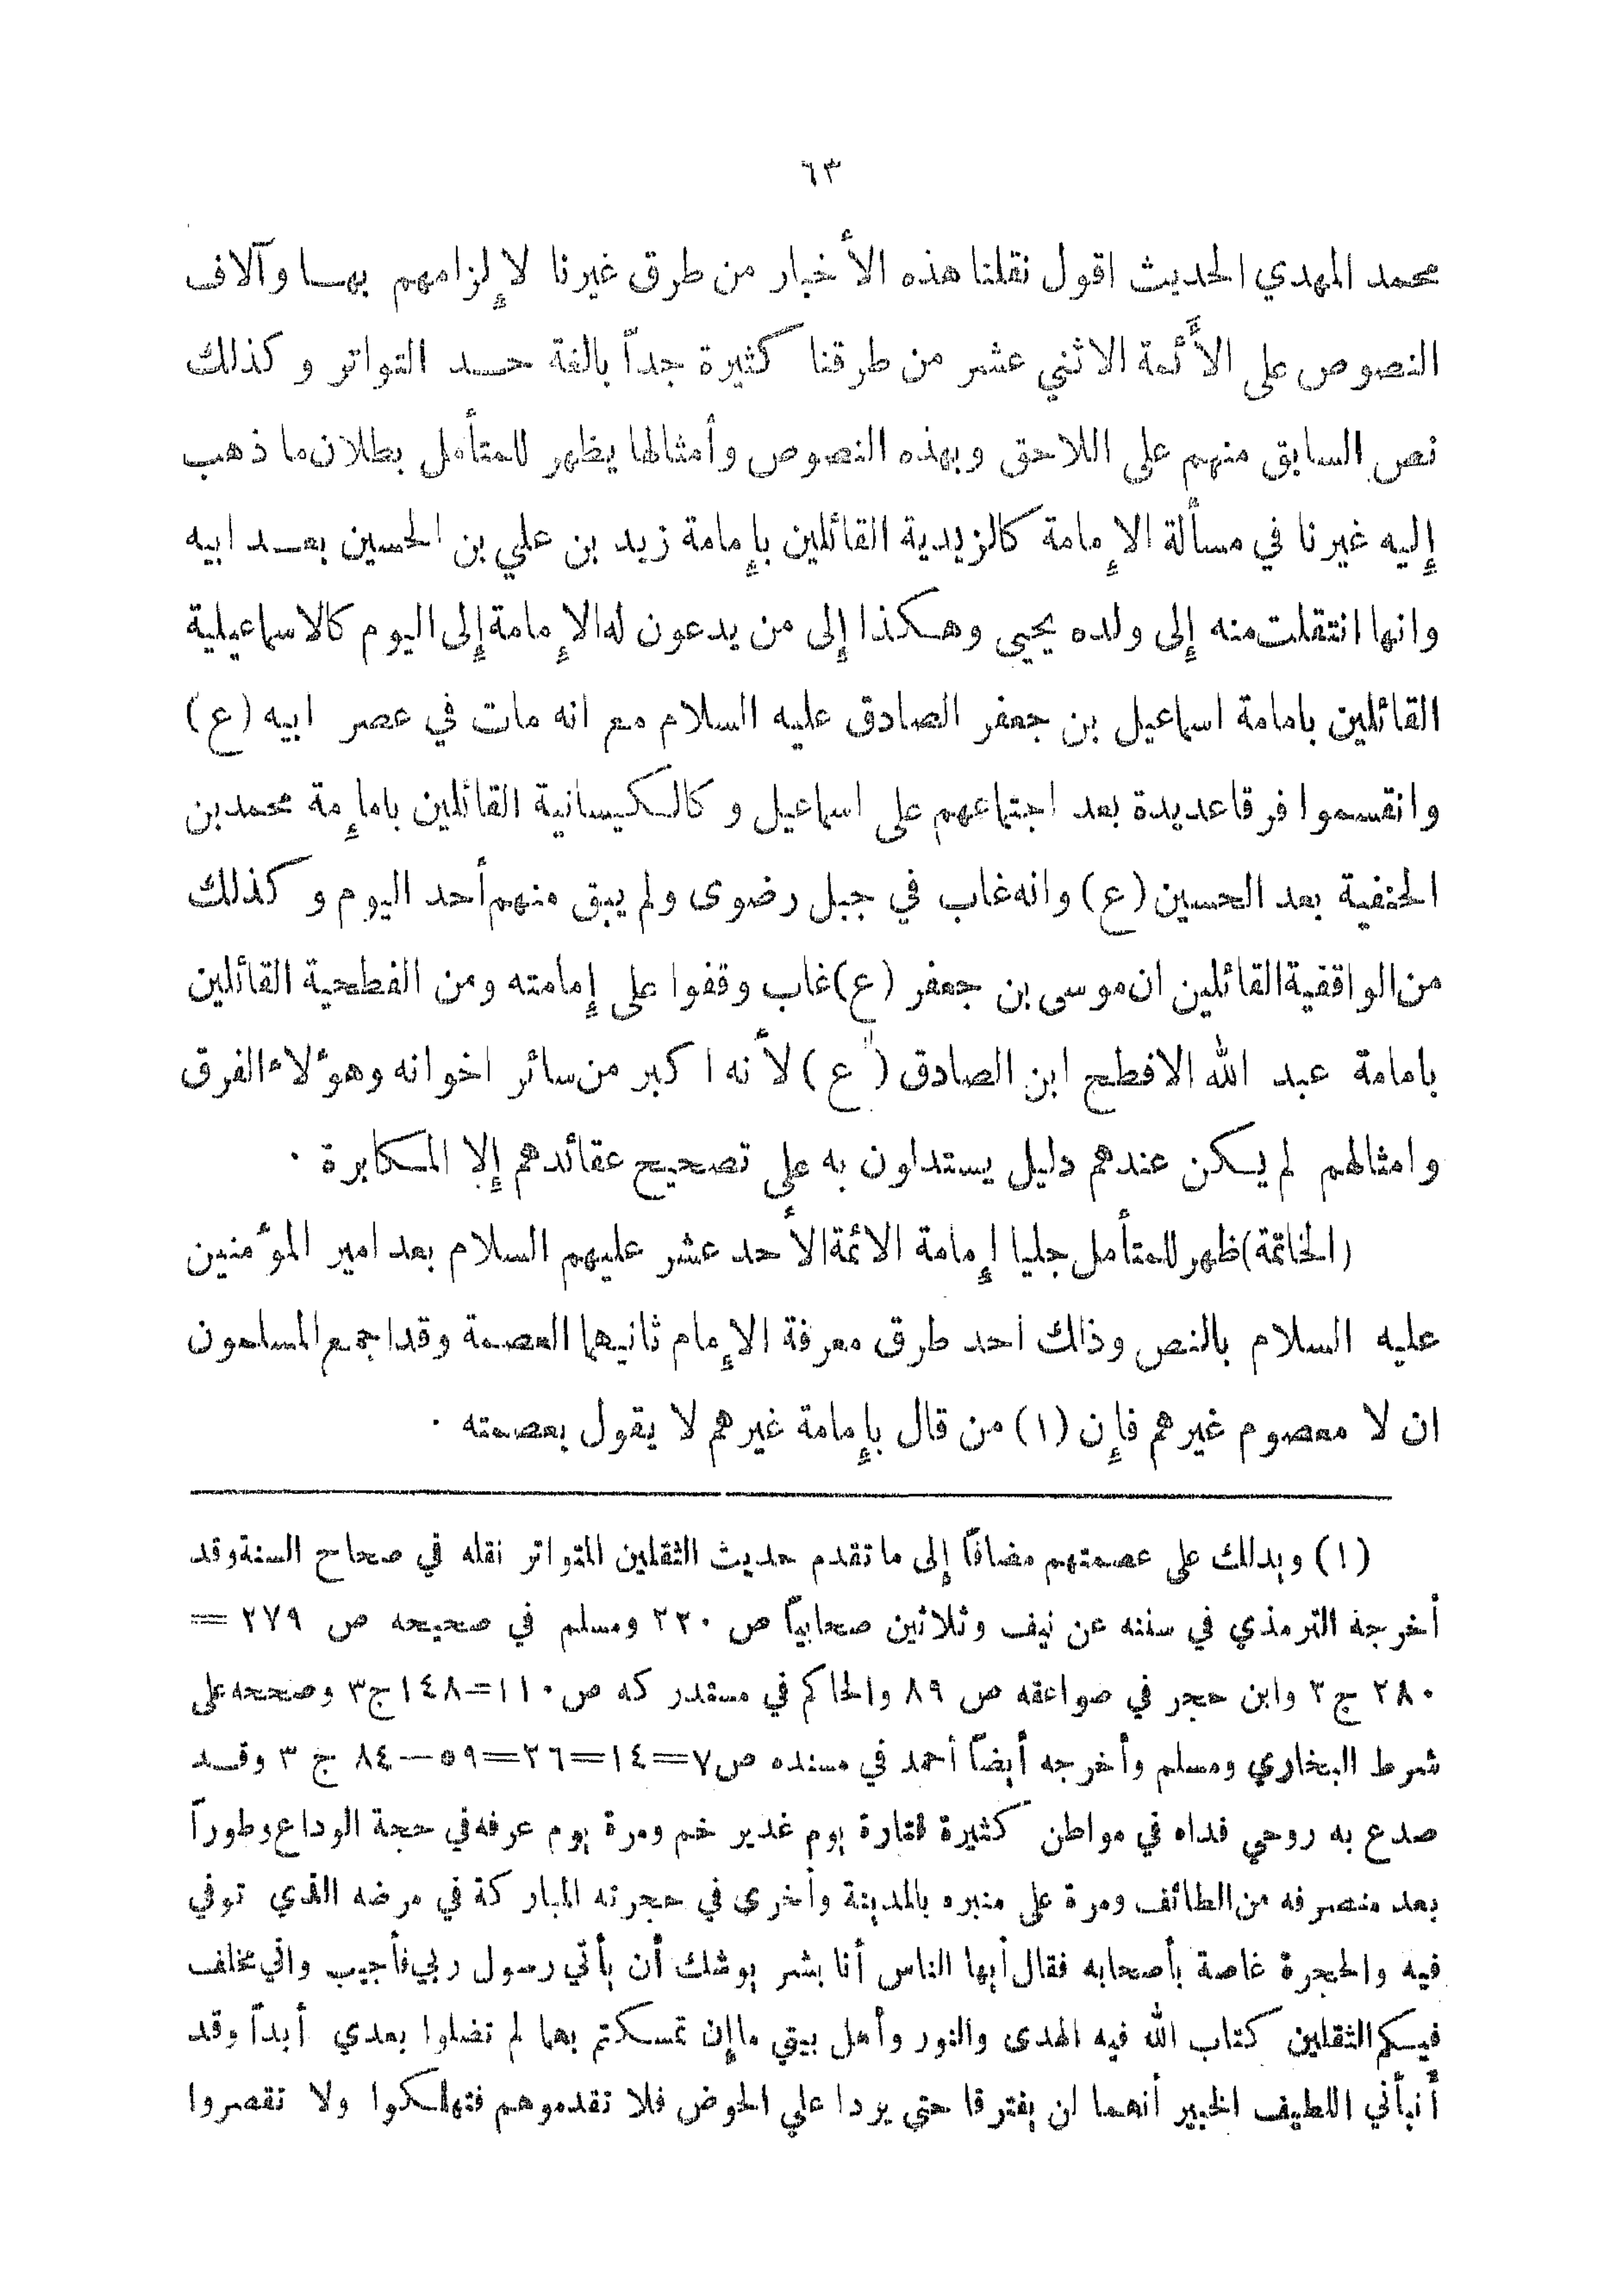 ٦٣
محمد المهدي الحديث اقول نقلنا هذه الأخبار من طرق غيرنا لإلزامهم بها وآلاف
النصوص على الأئمة الاثني عشر من طرقنا كثيرة جداً بالغة حد التواتر وكذلك
نص السابق منهم على اللاحق وبهذه النصوص وأمثالها يظهر للمتأمل بطلان ما ذهب
إليه غيرنا في مسألة الإمامة كالزيدية القائلين بإمامة زيد بن علي بن الحسين بعد ابيه
وانها انتقلت منه إلى ولده يحيى وهكذا إلى من يدعون له الإمامة إلى اليوم كالاسماعيلية
القائلين بامامة اسماعيل بن جعفر الصادق عليه السلام مع انه مات في عصر ابيه (ع)
وانقسموا فرقا عديدة بعد اجتماعهم على اسماعيل وكالكيسانية القائلين باماإمة محمد بن
الحنفية بعد الحسين (ع) وانه غاب في جبل رضوى ولم يبق منهم أحد اليوم وكذلك
من الواقفية القائلين ان موسى بن جعفر (ع) غاب وقفوا على إمامته ومن الفطحية القائلين
بامامة عبد الله الافطح ابن الصادق (ع) لأنه اكبر من سائر اخوانه وهؤلاء الفرق
وامثالهم لم يكن عندهم دليل يستدلون به على تصحيح عقائدهم إلا المكابرة .
(الخاتمة) ظهر للمتأمل جليا إمامة الائمة الأحد عشر عليهم السلام بعد امير المؤمنين
عليه السلام بالنص وذلك احد طرق معرفة الإمام ثانيهما العصمة وقد اجمع المسلمون
ان لا معصوم غيرهم فإن (١) من قال بإمامة غيرهم لا يقول بعصمته .
(١) ويدلك على عصمتهم مضافاً إلى ما تقدم حديث الثقلين المتواتر نقله في صحاح السنة وقد
أخرجه الترمذي في سننه عن نيف وثلاثين صحابياً ص ٢٢٠ ومسلم في صحيحه ص ٢٧٩ =
٢٨٠ ج ٢ وابن حجر في صواعقه ص ٨٩ والحاكم في مستدركه ص ١١٠=١٤٨ ج٣ وصححه على
شرط البخاري ومسلم وأخرجه أيضاً أحمد في مسنده ص٧=١٤=٢٦=٥٩—٨٤ ج ٣ وقد
صدع به روحي فداه في مواطن كثيرة فتارة يوم غدير خم ومرة يوم عرفه في حجة الوداع وطوراً
بعد منصرفه من الطائف ومرة على منبره بالمدينة وأخرى في حجرته المباركة في مرضه الذي توفي
فيه والحجرة غاصة بأصحابه فقال أيها الناس أنا بشر يوشك أن يأتي رسول ربي فأجيب واني مخلف
فيكم الثقلين كتاب الله فيه الهدى والنور وأهل بيتي ما إن تمسكتم بهما لم تضلوا بعدي أبداً وقد
أنبأني اللطيف الخبير أنهما لن يفترقا حتى يردا علي الحوض فلا تقدموهم فتهلكوا ولا تقصروا